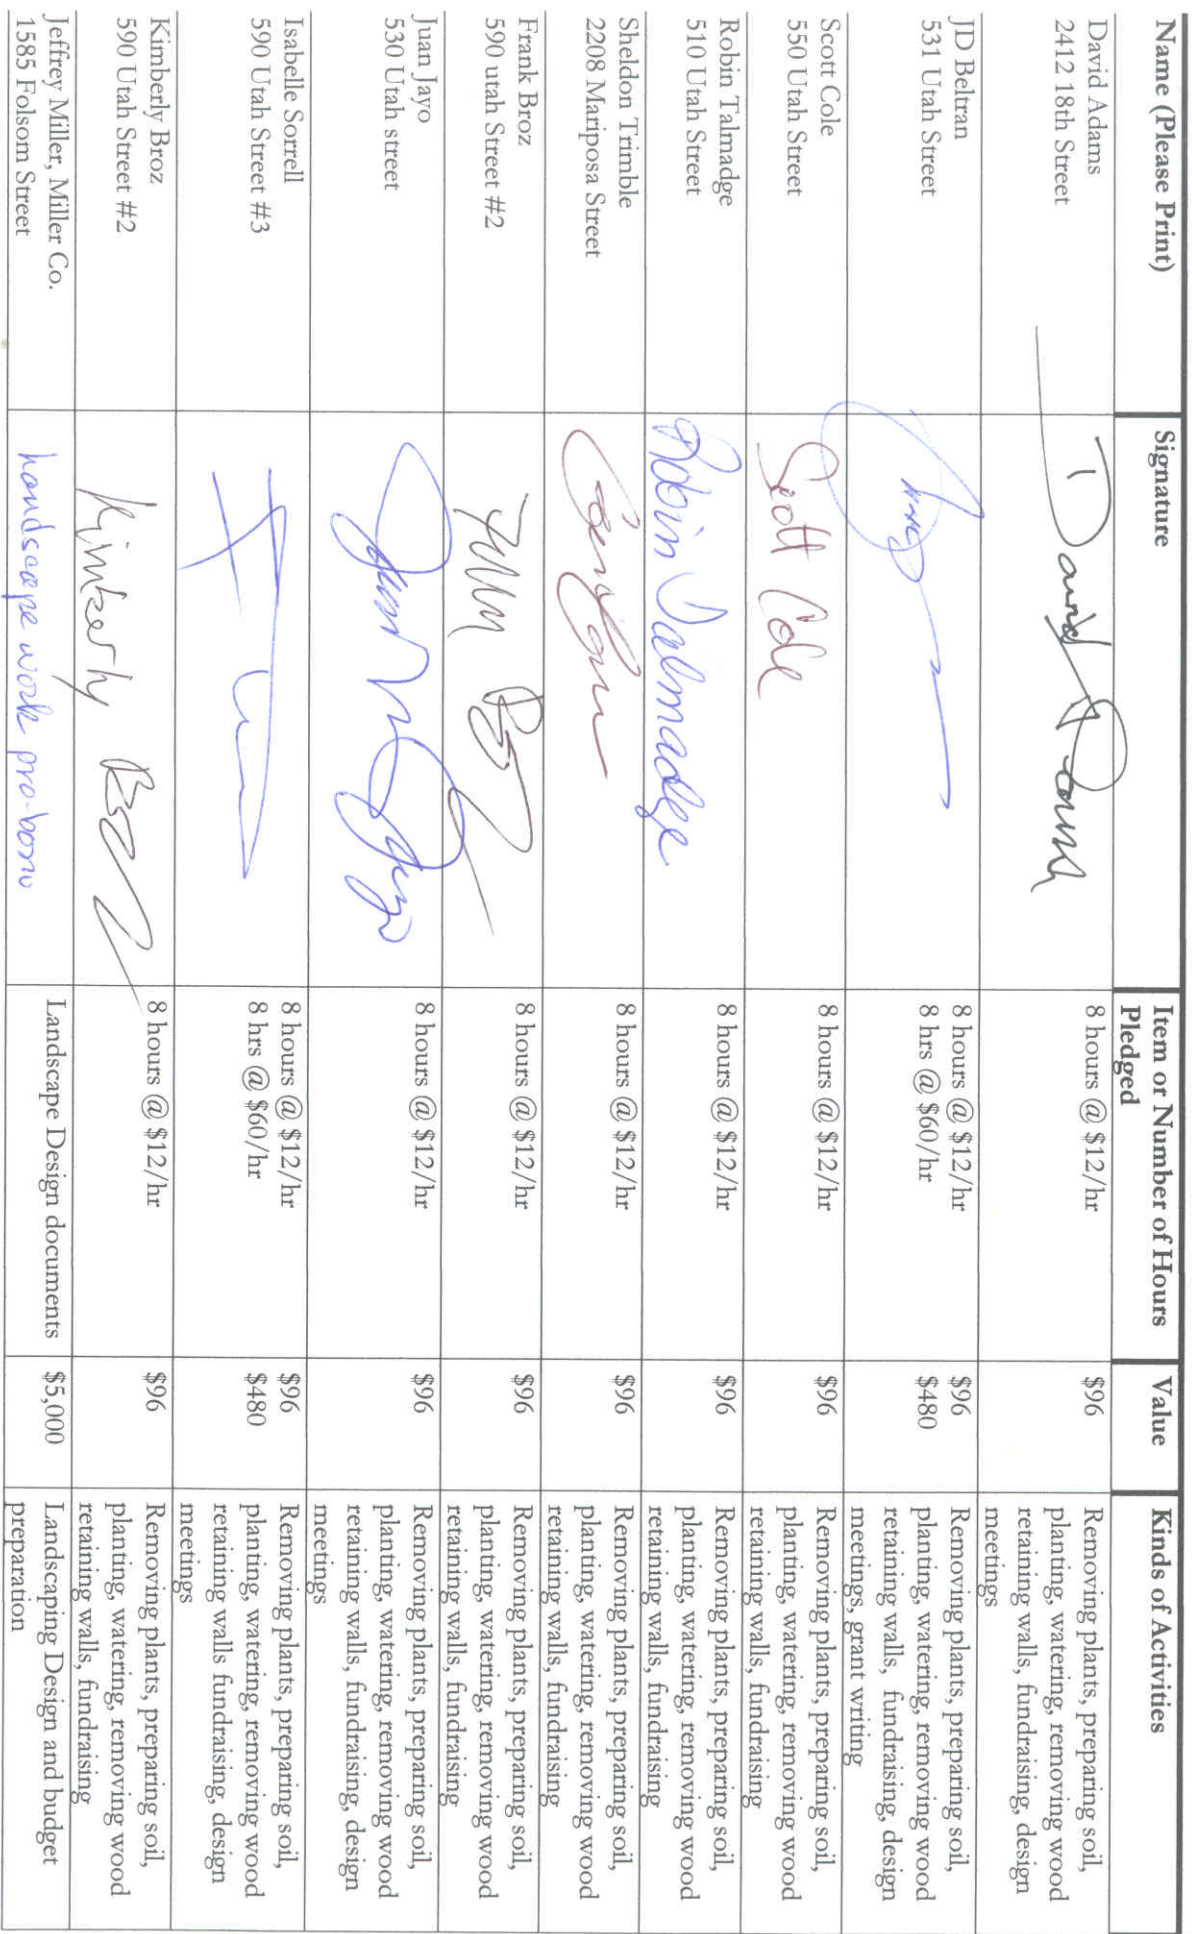 Name (Please Print) Signature Item or Number of Hours Pledged Value Kinds of Activities
David Adams
2412 18th Street
David Adams
8 hours @ $12/hr
$96
Removing plants, preparing soil,
planting, watering, removing wood
retaining walls, fundraising, design
meetings
JD Beltran
531 Utah Street
8 hours @ $12/hr
8 hrs @ $60/hr
$96
$480
Removing plants, preparing soil,
planting, watering, removing wood
retaining walls, fundraising, design
meetings, grant writing
Scott Cole
550 Utah Street
Scott Cole
8 hours @ $12/hr
$96
Removing plants, preparing soil,
planting, watering, removing wood
retaining walls, fundraising
Robin Talmadge
510 Utah Street
Robin Talmadge
8 hours @ $12/hr
$96
Removing plants, preparing soil,
planting, watering, removing wood
retaining walls, fundraising
Sheldon Trimble
2208 Mariposa Street
8 hours @ $12/hr
$96
Removing plants, preparing soil,
planting, watering, removing wood
retaining walls, fundraising
Frank Broz
590 utah Street #2
8 hours @ $12/hr
$96
Removing plants, preparing soil,
planting, watering, removing wood
retaining walls, fundraising
Juan Jayo
530 Utah street
8 hours @ $12/hr
$96
Removing plants, preparing soil,
planting, watering, removing wood
retaining walls, fundraising, design
meetings
Isabelle Sorrell
590 Utah Street #3
8 hours @ $12/hr
8 hrs @ $60/hr
$96
$480
Removing plants, preparing soil,
planting, watering, removing wood
retaining walls fundraising, design
meetings
Kimberly Broz
590 Utah Street #2
Kimberly Broz
8 hours @ $12/hr
$96
Removing plants, preparing soil,
planting, watering, removing wood
retaining walls, fundraising
Jeffrey Miller, Miller Co.
1585 Folsom Street
landscape work pro-bono
Landscape Design documents
$5,000
Landscaping Design and budget
preparation